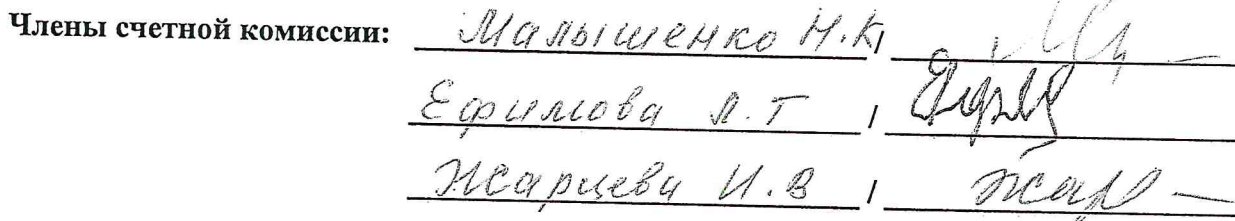 Члены счетной комиссии: Малышенко Н.К/
Ефимова Л.Т /
Жарцева И.В / Жар